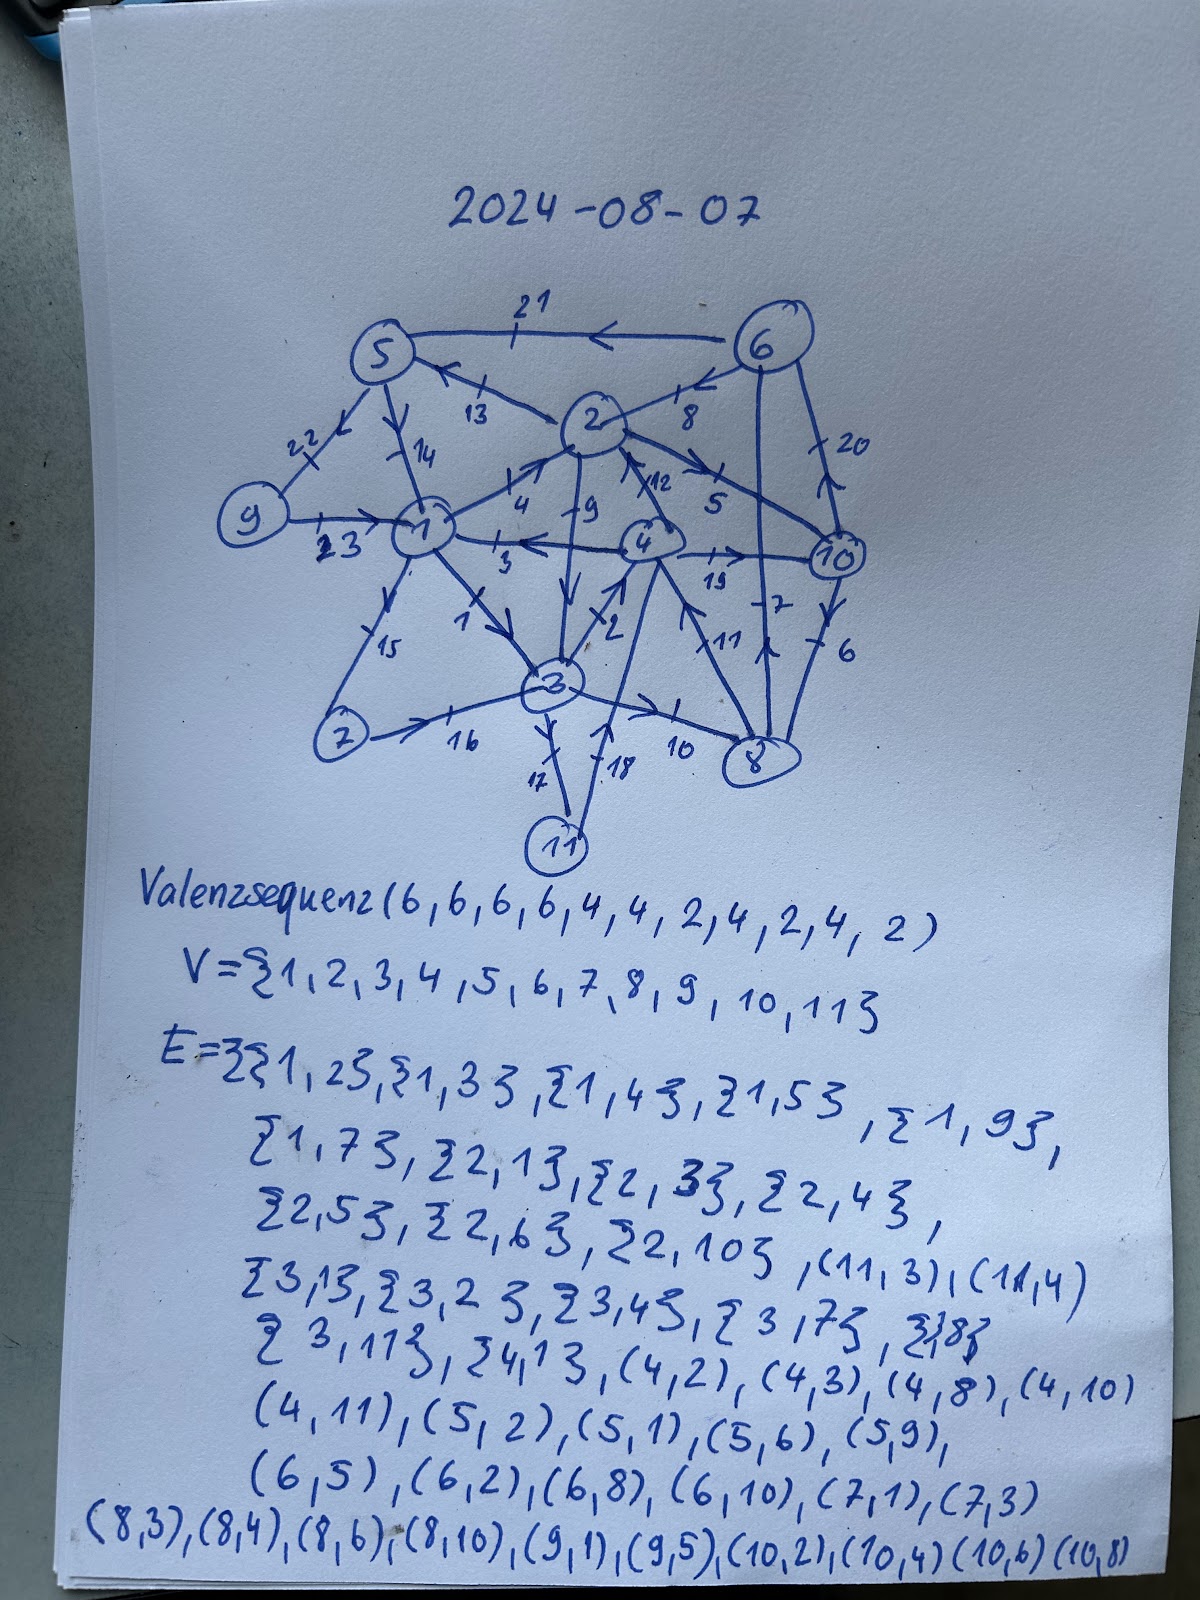 2024-08-07
21
5
6
13
2
8
22
14
4
9
12
5
20
9
1
23
3
4
19
10
1
2
11
7
6
15
3
7
16
10
8
17
18
11
Valenzsequenz(6,6,6,6,4,4,2,4,2,4,2)
V={1,2,3,4,5,6,7,8,9,10,11}
E={{1,2},{1,3},{1,4},{1,5},{1,9},
{1,7},{2,1},{2,3},{2,4},
{2,5},{2,6},{2,10},(11,3),(11,4)
{3,1},{3,2},{3,4},{3,7},{3,8}
{3,11},{4,1},(4,2),(4,3),(4,8),(4,10)
(4,11),(5,2),(5,1),(5,6),(5,9),
(6,5),(6,2),(6,8),(6,10),(7,1),(7,3)
(8,3),(8,4),(8,6),(8,10),(9,1),(9,5),(10,2),(10,4)(10,6)(10,8)